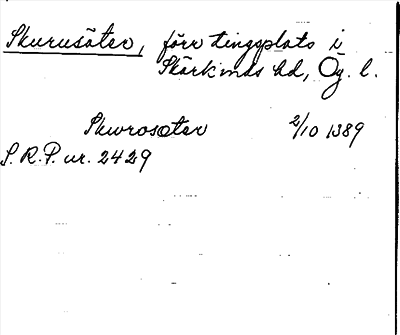 Skurusäter, förr tingsplats i
Skärkinds hd, Ög. l.
Skurosæter 2/10 1389
S.R.P. nr. 2429